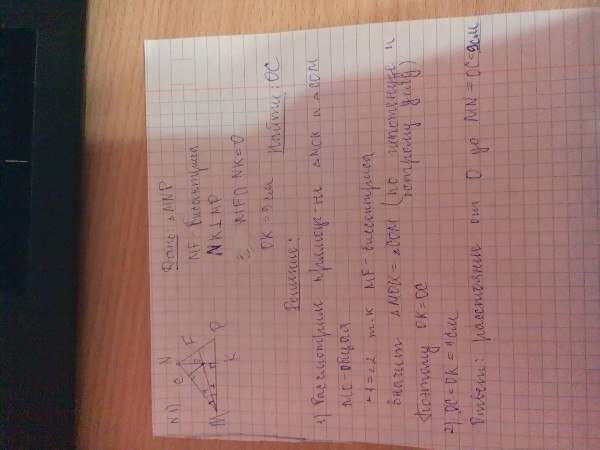 N 1)
C N
F
M P
K
1 2
Дано: △MNP
MF биссектриса
NK⊥MP
MF∩NK=O
OK=9см Найти: OC
Решение:
1) Рассмотрим прямоуг-ые △MOK и △COM
MO-общая
∠1=∠2 т.к MF-биссектриса
Значит △MOK=△COM (по гипотенузе и
острому углу)
Поэтому OK=OC
2) OC=OK=9см
Ответ: расстояние от O до MN=OC=9см